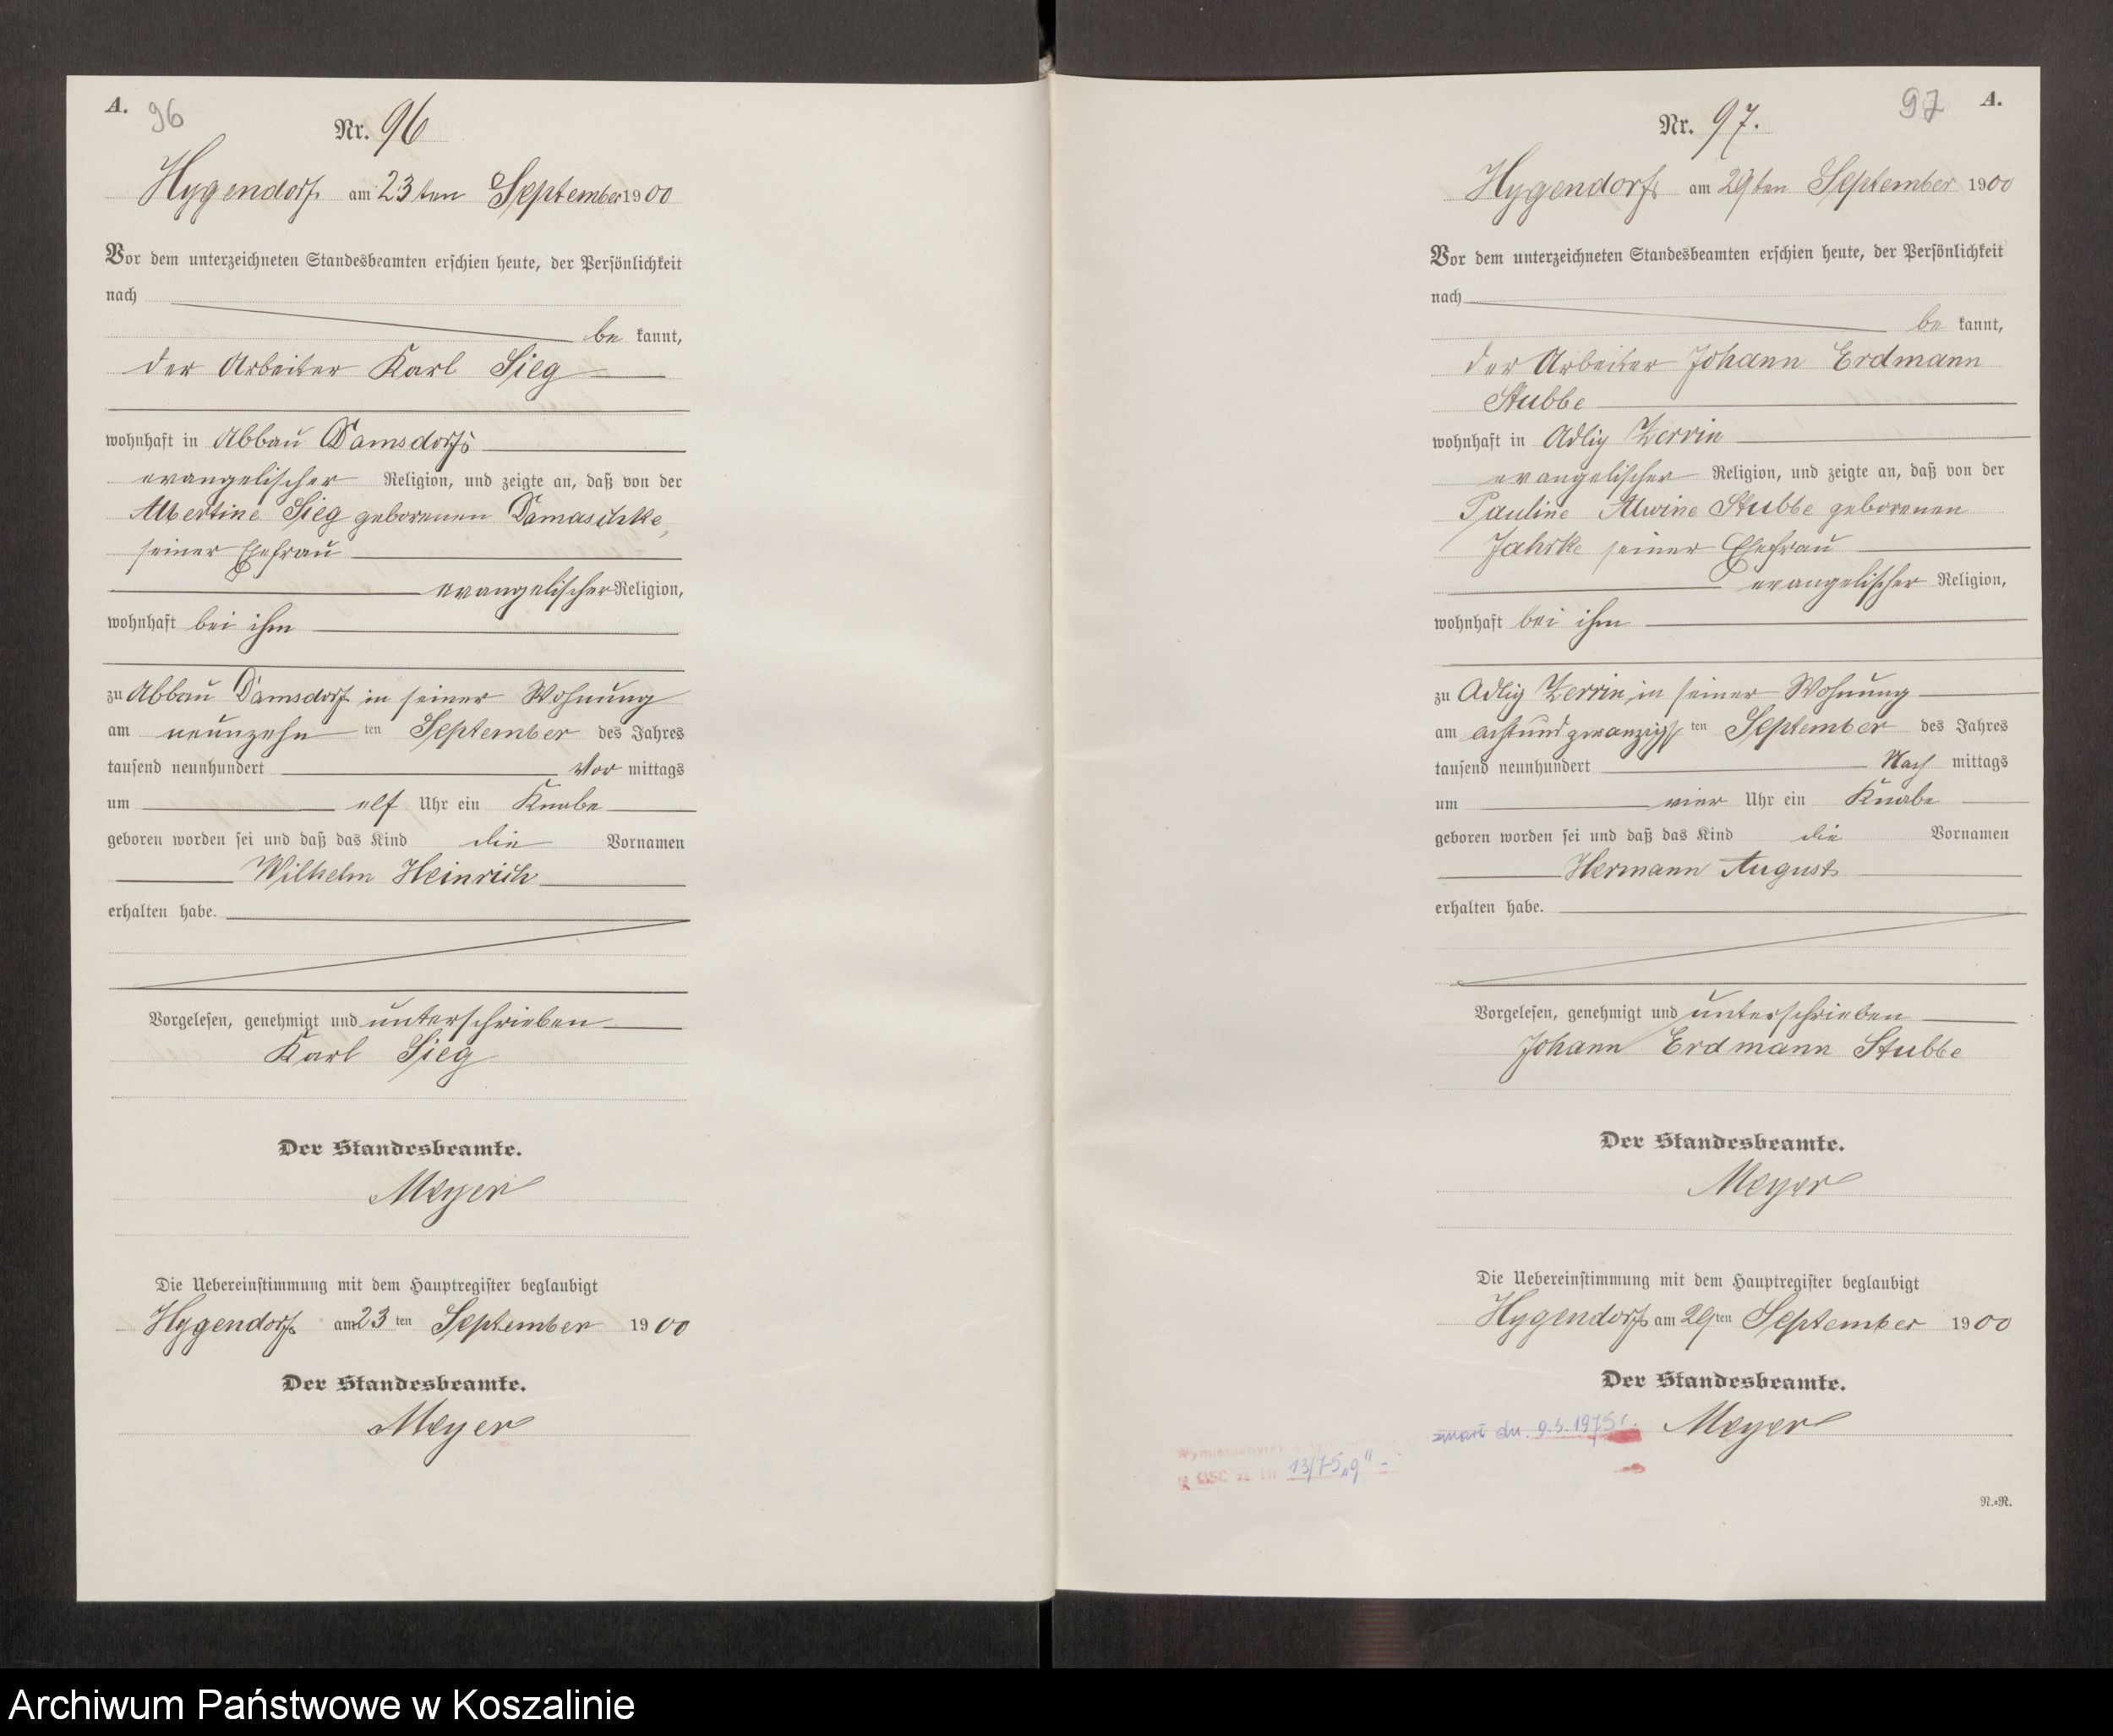 A.
96
Nr. 96
Hygendorf am 23ten September 1900
Vor dem unterzeichneten Standesbeamten erschien heute, der Persönlichkeit
nach
be kannt,
der Arbeiter Karl Sieg
wohnhaft in Abbau Damsdorf
evangelischer Religion, und zeigte an, daß von der
Albertine Sieg geborenen Damaschke,
seiner Ehefrau
evangelischer Religion,
wohnhaft bei ihm
zu Abbau Damsdorf in seiner Wohnung
am neunzehn ten September des Jahres
tausend neunhundert Vor mittags
um elf Uhr ein Knabe
geboren worden sei und daß das Kind die Vornamen
Wilhelm Heinrich
erhalten habe.
Vorgelesen, genehmigt und unterschrieben
Karl Sieg
Der Standesbeamte.
Meyer
Die Uebereinstimmung mit dem Hauptregister beglaubigt
Hygendorf am 23 ten September 1900
Der Standesbeamte.
Meyer
97 A.
Nr. 97.
Hygendorf am 29ten September 1900
Vor dem unterzeichneten Standesbeamten erschien heute, der Persönlichkeit
nach
be kannt,
der Arbeiter Johann Erdmann
Stubbe
wohnhaft in Adlig Zerrin
evangelischer Religion, und zeigte an, daß von der
Pauline Alwine Stubbe geborenen
Jahrke seiner Ehefrau
evangelischer Religion,
wohnhaft bei ihm
zu Adlig Zerrin, in seiner Wohnung
am achtundzwanzigs ten September des Jahres
tausend neunhundert Nach mittags
um vier Uhr ein Knabe
geboren worden sei und daß das Kind die Vornamen
Hermann August
erhalten habe.
Vorgelesen, genehmigt und unterschrieben
Johann Erdmann Stubbe
Der Standesbeamte.
Meyer
Die Uebereinstimmung mit dem Hauptregister beglaubigt
Hygendorf am 29 ten September 1900
Der Standesbeamte.
zmarł dn. 9.3.1975 r. Meyer
USC 13/75 „g" -
N.=N.
Archiwum Państwowe w Koszalinie